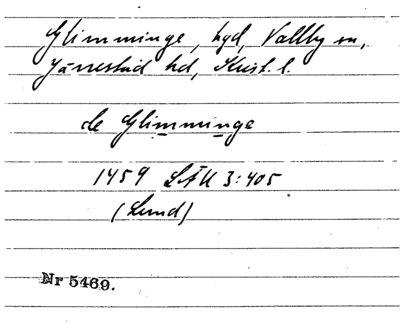 Glimminge, hgd, Vallby sn,
Järrestad hd, Krist. l.
de Glimminge
1459 LÄU 3:405
(Lund)
Nr 5469.